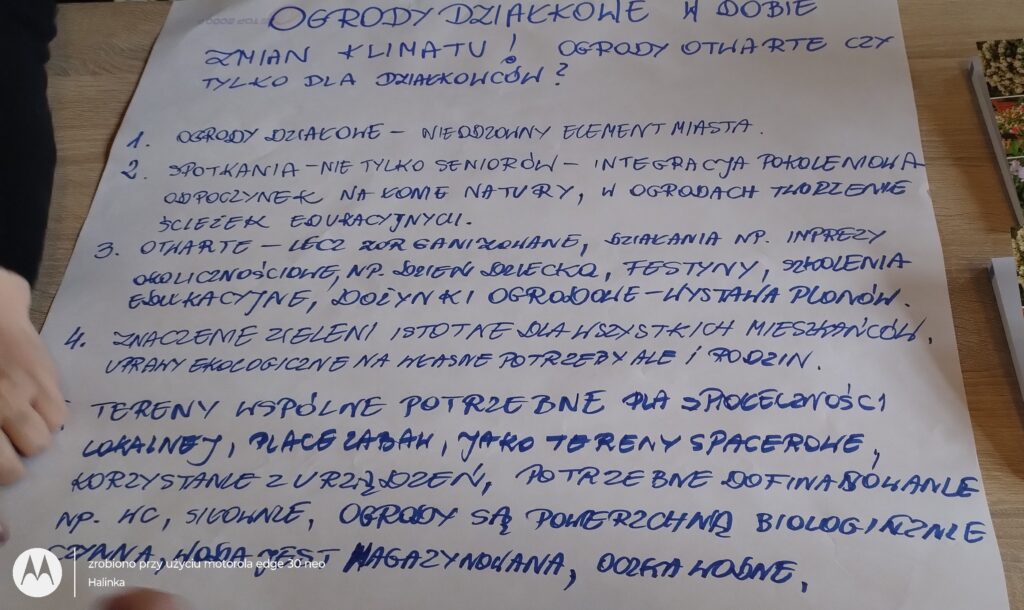 OGRODY DZIAŁKOWE W DOBIE
ZMIAN KLIMATU! OGRODY OTWARTE CZY
TYLKO DLA DZIAŁKOWCÓW?
1. OGRODY DZIAŁKOWE – NIEODZOWNY ELEMENT MIASTA.
2. SPOTKANIA – NIE TYLKO SENIORÓW – INTEGRACJA POKOLENIOWA
ODPOCZYNEK NA ŁONIE NATURY, W OGRODACH TWORZENIE
ŚCIEŻEK EDUKACYJNYCH.
3. OTWARTE – LECZ ZORGANIZOWANE, DZIAŁANIA NP. IMPREZY
OKOLICZNOŚCIOWE, NP. DZIEŃ DZIECKA, FESTYNY, SZKOLENIA
EDUKACYJNE, DOŻYNKI OGRODOWE – WYSTAWA PLONÓW.
4. ZNACZENIE ZIELENI ISTOTNE DLA WSZYSTKICH MIESZKAŃCÓW,
UPRAWY EKOLOGICZNE NA WŁASNE POTRZEBY ALE I RODZIN.
TERENY WSPÓLNE POTRZEBNE DLA SPOŁECZNOŚCI
LOKALNEJ, PLACE ZABAW, JAKO TERENY SPACEROWE,
KORZYSTANIE Z URZĄDZEŃ, POTRZEBNE DOFINANSOWANIE
NP. WC, SIŁOWNIE, OGRODY SĄ POWIERZCHNIĄ BIOLOGICZNIE
CZYNNA, WODA JEST MAGAZYNOWANA, OCZKA WODNE,
zrobiono przy użyciu motorola edge 30 neo
Halinka